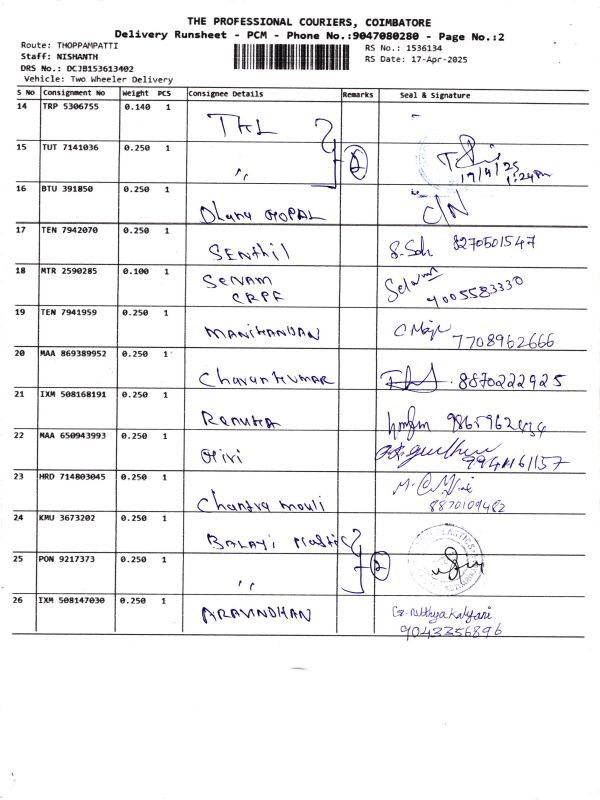 THE PROFESSIONAL COURIERS, COIMBATORE
Delivery Runsheet - PCM - Phone No.:9047080280 - Page No.:2
Route: THOPPAMPATTI
RS No.: 1536134
Staff: NISHANTH
RS Date: 17-Apr-2025
DRS No.: DCJB153613402
Vehicle: Two Wheeler Delivery
S No Consignment No Weight PCS Consignee Details Remarks Seal & Signature
14 TRP 5306755 0.140 1 THL
15 TUT 7141036 0.250 1 〃 2 17/4/25
1:24pm
16 BTU 391850 0.250 1 Dhana GOPAL
17 TEN 7942070 0.250 1 SENthil 8270501547
18 MTR 2590285 0.100 1 SELVAM
CRPF 9005583330
19 TEN 7941959 0.250 1 MANIKANDAN 7708962666
20 MAA 869389952 0.250 1 Charan KUMAR 8870222925
21 IXM 508168191 0.250 1 RENUKA
22 MAA 650943993 0.250 1 Giri 9944161157
23 HRD 714803045 0.250 1 Chandra mouli
8870109482
24 KMU 3673202 0.250 1 BALAJI Plastic
25 PON 9217373 0.250 1 〃 2
26 IXM 508147030 0.250 1 ARAVINDHAN
9043356896